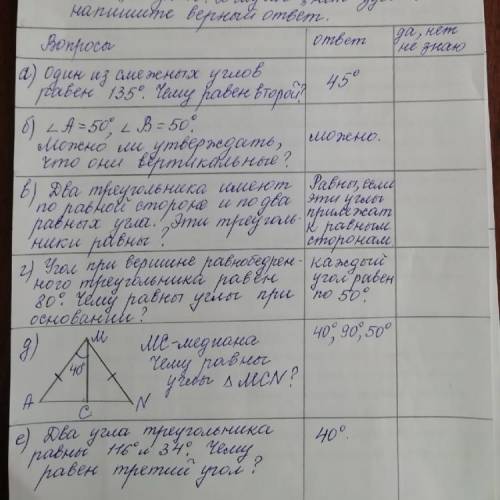 напишите верный ответ.
Вопросы
ответ
да, нет
не знаю
а) Один из смежных углов
равен 135°. Чему равен второй?
45°
б) ∠A = 50°, ∠B = 50°.
Можно ли утверждать,
что они вертикальные?
можно.
в) Два треугольника имеют
по равной стороне и по два
равных угла. Эти треуголь-
ники равны?
Равны, если
эти углы
прилежат
к равным
сторонам
г) Угол при вершине равнобедрен-
ного треугольника равен
80°. Чему равны углы при
основании?
каждый
угол равен
по 50°.
д)
M
40°
A
C
N
MC-медиана
Чему равны
углы △MCN?
40°, 90°, 50°
е) Два угла треугольника
равны 116° и 34°. Чему
равен третий угол?
40°.